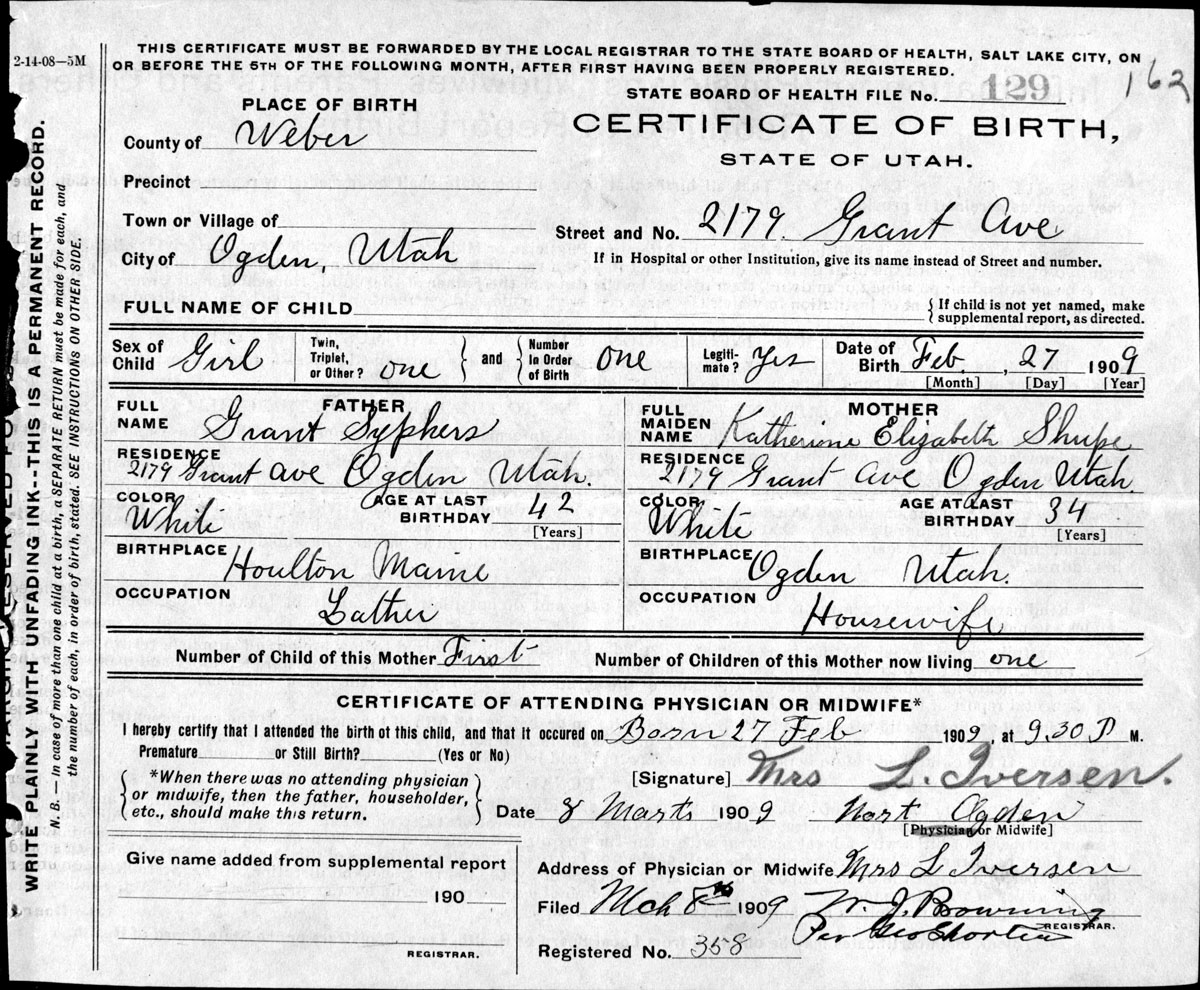 2-14-08—5M
THIS CERTIFICATE MUST BE FORWARDED BY THE LOCAL REGISTRAR TO THE STATE BOARD OF HEALTH, SALT LAKE CITY, ON
OR BEFORE THE 5TH OF THE FOLLOWING MONTH, AFTER FIRST HAVING BEEN PROPERLY REGISTERED.
STATE BOARD OF HEALTH FILE No. 129
162
PLACE OF BIRTH
CERTIFICATE OF BIRTH,
STATE OF UTAH.
County of Weber
Precinct
Town or Village of
City of Ogden, Utah
Street and No. 2179 Grant Ave
If in Hospital or other Institution, give its name instead of Street and number.
FULL NAME OF CHILD
{ If child is not yet named, make
supplemental report, as directed.
Sex of Child Girl
Twin, Triplet, or Other? one } and { Number In Order of Birth one
Legiti-mate? Yes
Date of Birth Feb. , 27 1909
[Month] [Day] [Year]
FATHER
FULL NAME Grant Syphers
RESIDENCE
2179 Grant ave Ogden Utah.
COLOR White
AGE AT LAST BIRTHDAY 42
[Years]
BIRTHPLACE Houlton Maine
OCCUPATION
Lather
MOTHER
FULL MAIDEN NAME Katherine Elizabeth Shupe
RESIDENCE
2179 Grant ave Ogden Utah.
COLOR White
AGE AT LAST BIRTHDAY 34
[Years]
BIRTHPLACE Ogden Utah.
OCCUPATION
Housewife
Number of Child of this Mother First
Number of Children of this Mother now living one
CERTIFICATE OF ATTENDING PHYSICIAN OR MIDWIFE*
I hereby certify that I attended the birth of this child, and that it occured on Born 27 Feb 1909, at 9.30 P M.
Premature or Still Birth? (Yes or No)
{ *When there was no attending physician
or midwife, then the father, householder,
etc., should make this return. }
[Signature] Mrs L. Iversen.
Date 8 Marts 1909 Nort Ogden
[Physician or Midwife]
Give name added from supplemental report
190
REGISTRAR.
Address of Physician or Midwife Mrs L Iversen
Filed Mch 8th 1909 W. J. Browning
REGISTRAR.
Per Geo Shorten
Registered No. 358
WRITE PLAINLY WITH UNFADING INK--THIS IS A PERMANENT RECORD.
N. B. — In case of more than one child at a birth, a SEPARATE RETURN must be made for each, and
the number of each, in order of birth, stated. SEE INSTRUCTIONS ON OTHER SIDE.